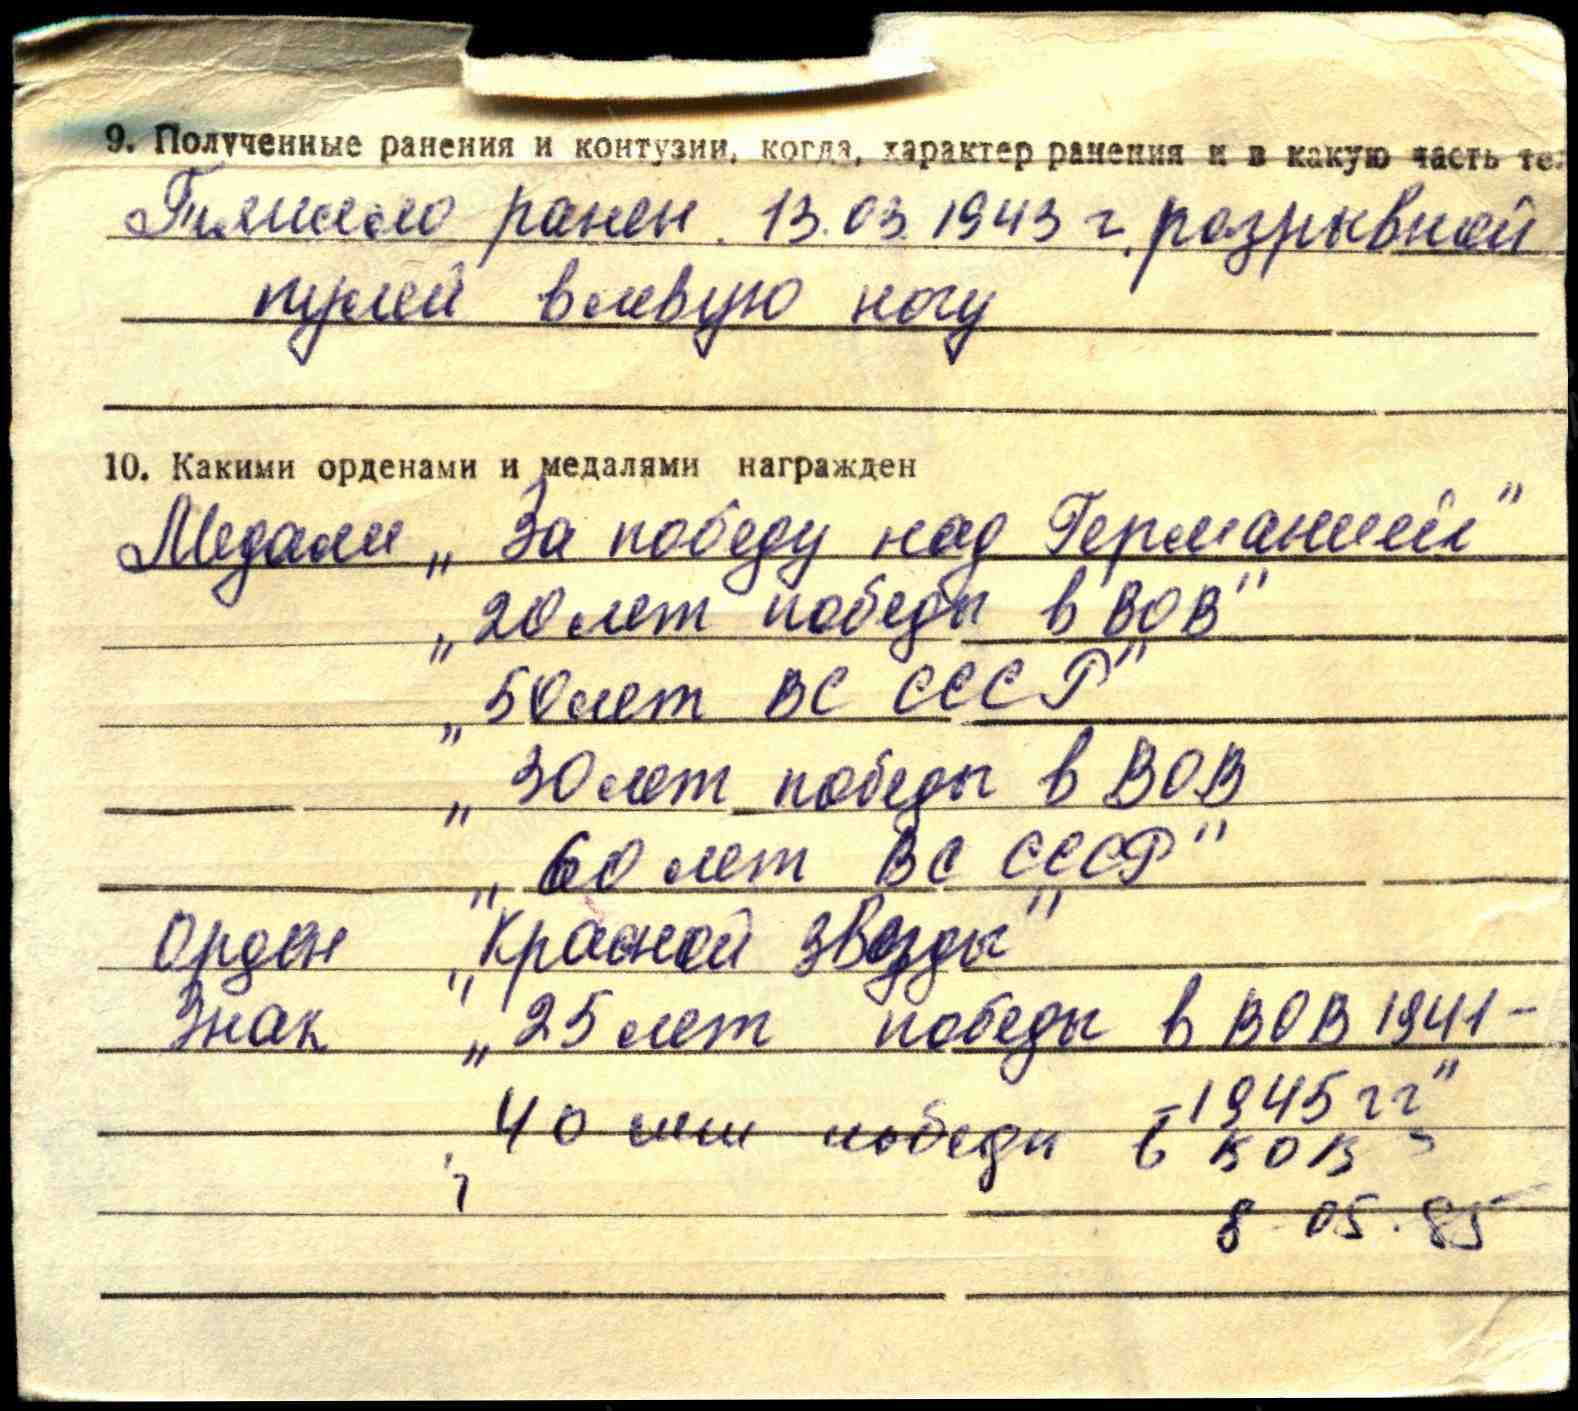 9. Полученные ранения и контузии, когда, характер ранения и в какую часть те
Тяжело ранен. 13.03.1943 г. разрывной
пулей в левую ногу
10. Какими орденами и медалями награжден
Медали „За победу над Германией"
„20 лет победы в ВОВ"
„50 лет ВС СССР"
„30 лет победы в ВОВ
„60 лет ВС СССР"
Орден „Красной Звезды"
Знак „25 лет победы в ВОВ 1941-
-1945 гг"
40 лет победы в ВОВ"
8.05.85